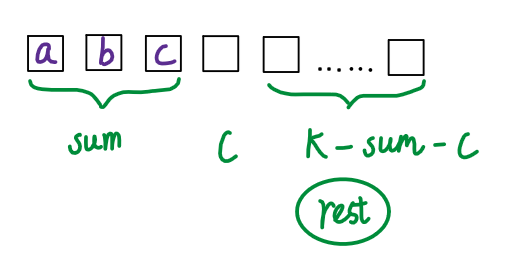 a b c ......
sum C K - sum - C
rest